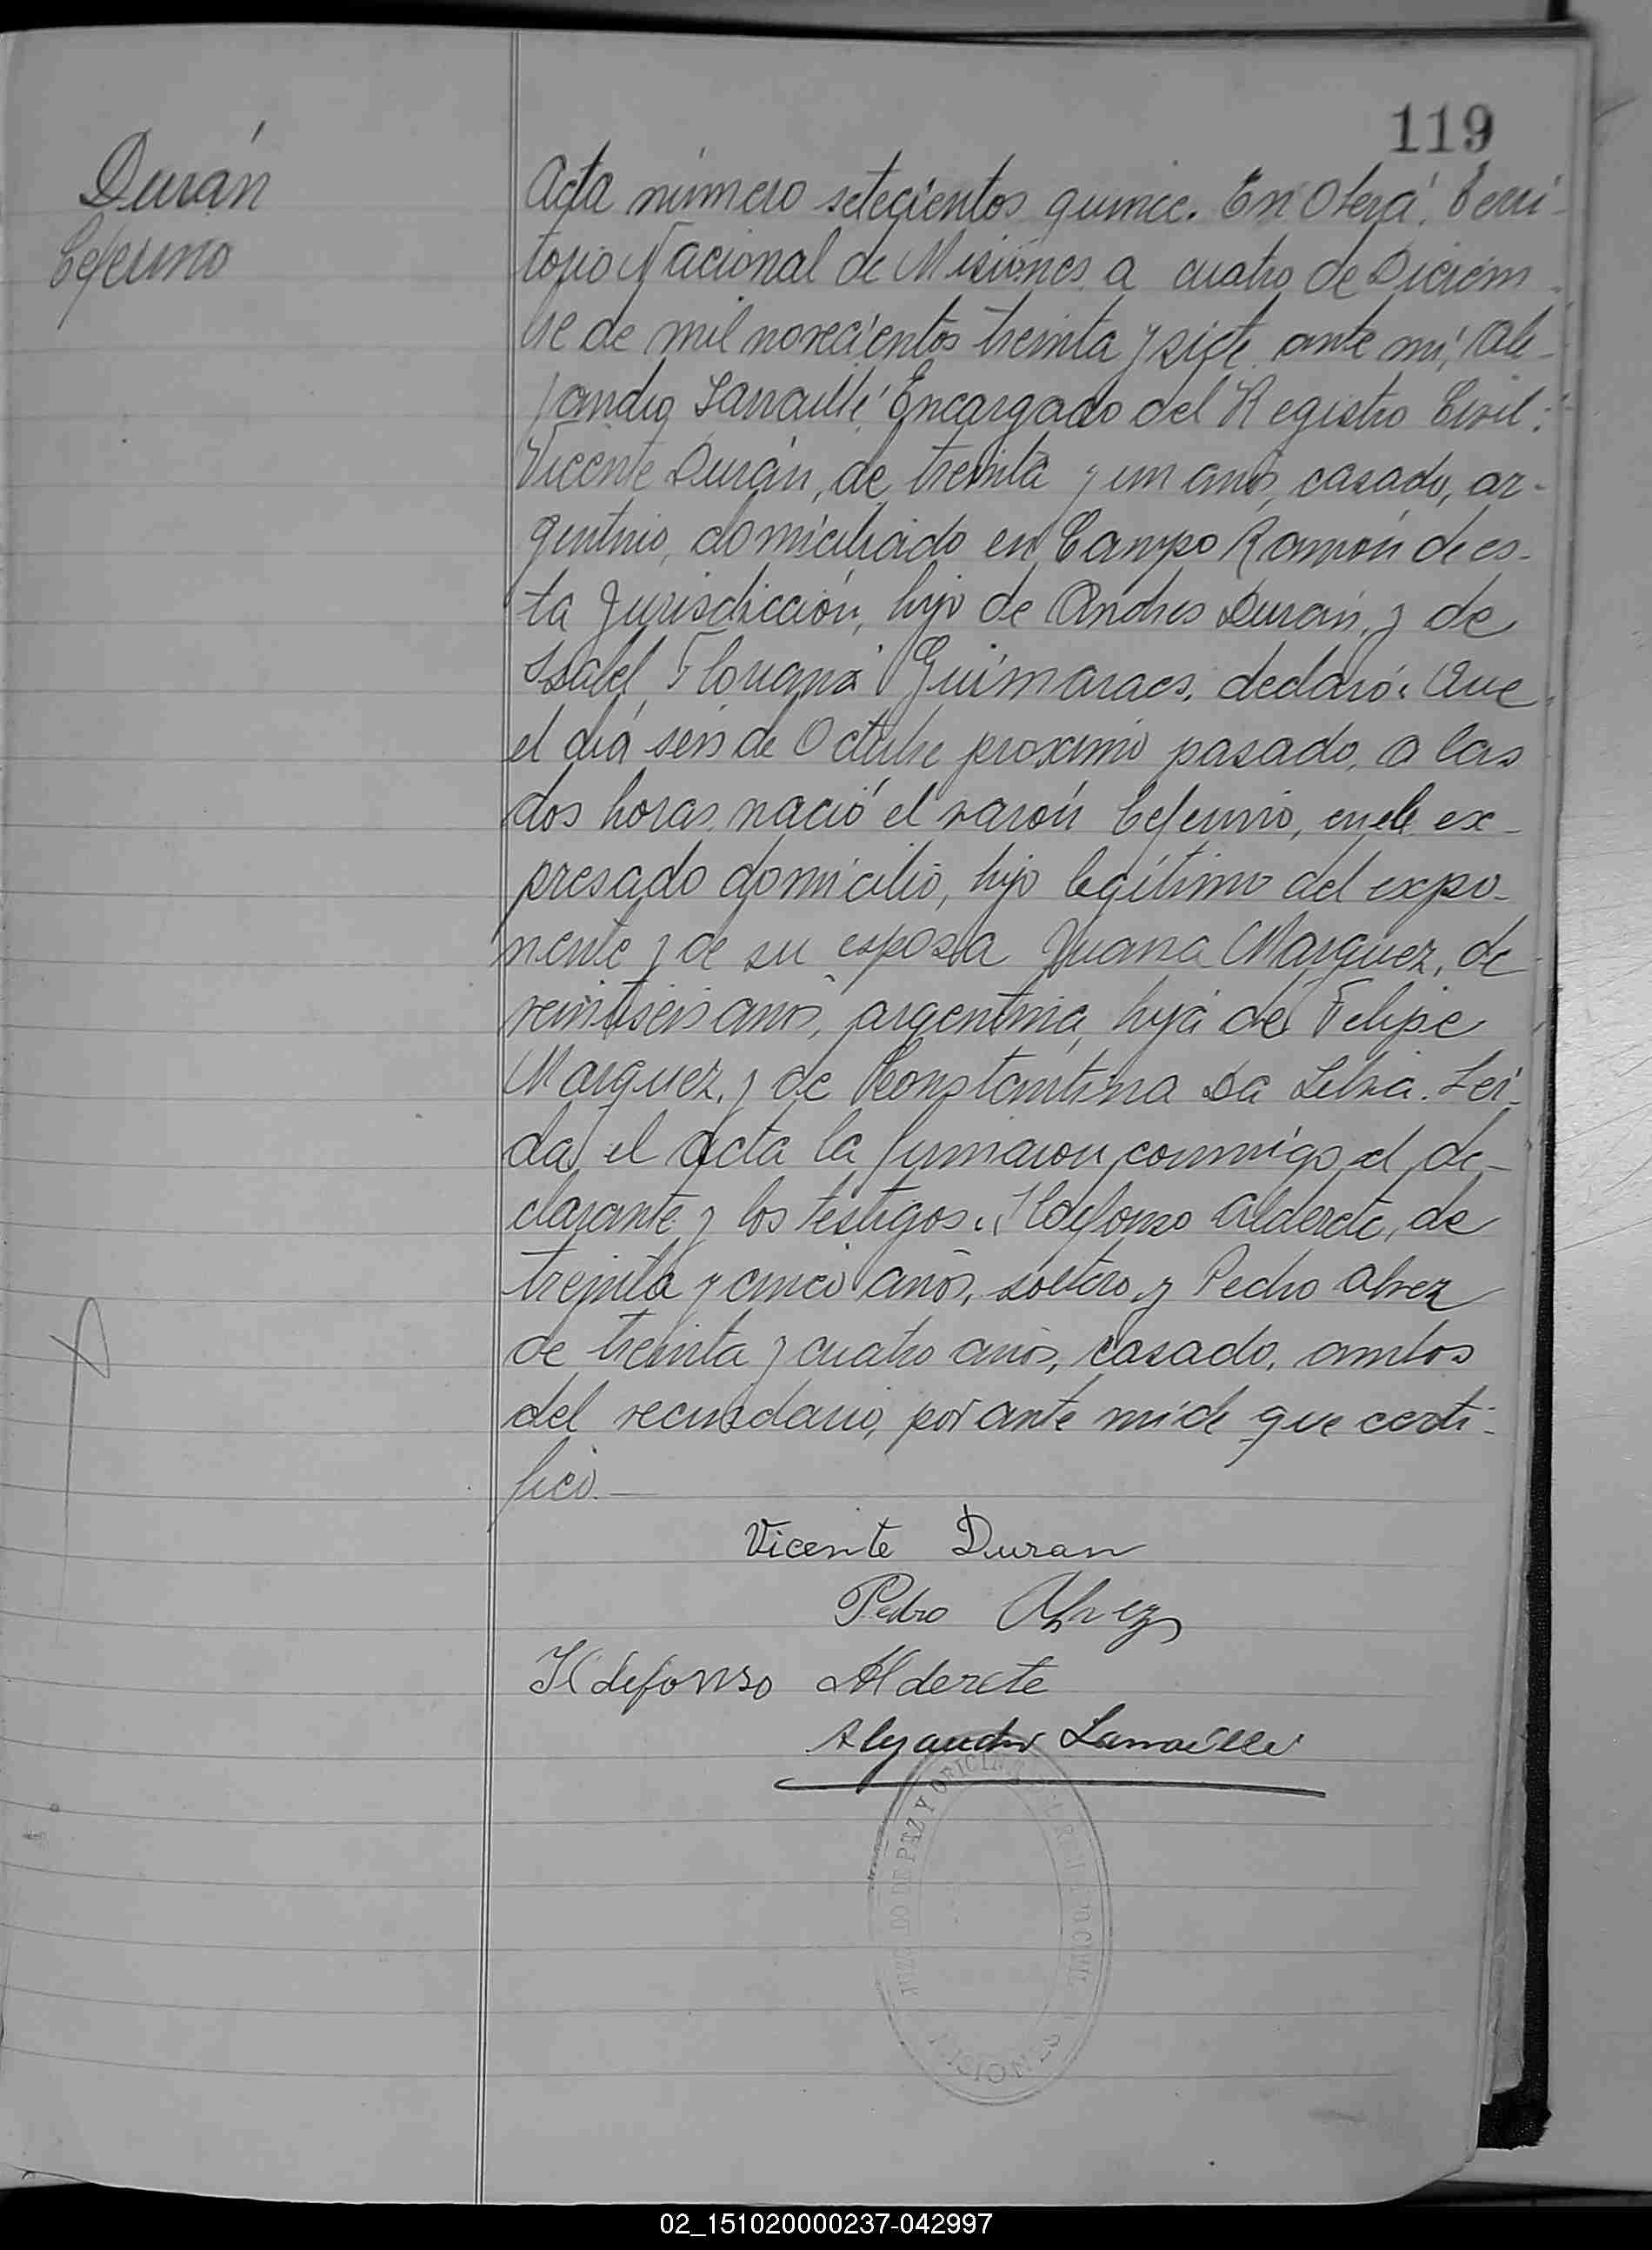 119
Durán
Ceferino
Acta número setecientos quince. En Oberá, Terri-
torio Nacional de Misiones a cuatro de Diciem-
bre de mil novecientos treinta y siete ante mí, Ale-
jandro Larraillé Encargado del Registro Civil:
Vicente Durán, de treinta y un años, casado, ar-
gentino, domiciliado en Campo Ramón de es-
ta Jurisdicción, hijo de Andrés Durán, y de
Isabel Floriana Guimaraes, declaró: Que
el día seis de Octubre proximo pasado, a las
dos horas, nació el varón Ceferino, en el ex-
presado domicilio, hijo legítimo del expo-
nente y de su esposa Juana Marquez, de
veintiseis años, argentina, hija de Felipe
Marquez, y de Constantina Da Silva. Lei-
da el acta la firmaron conmigo el de-
clarante y los testigos: Ildefonso Alderete, de
treinta y cinco años, soltero y Pedro Alvez
de treinta y cuatro años, casado, ambos
del vecindario, por ante mi de que certi-
fico.—
Vicente Duran
Pedro Alvez
Ildefonso Alderete
Alejandro Larraillé
JUZGADO DE PAZ Y OFICINA DEL REGISTRO CIVIL
MISIONES
02_151020000237-042997